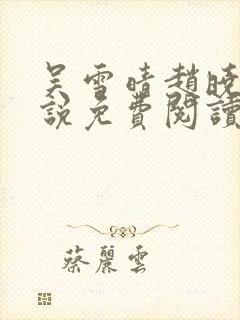 吴雪晴趙曉
說免費閱讀
蔡麗雲